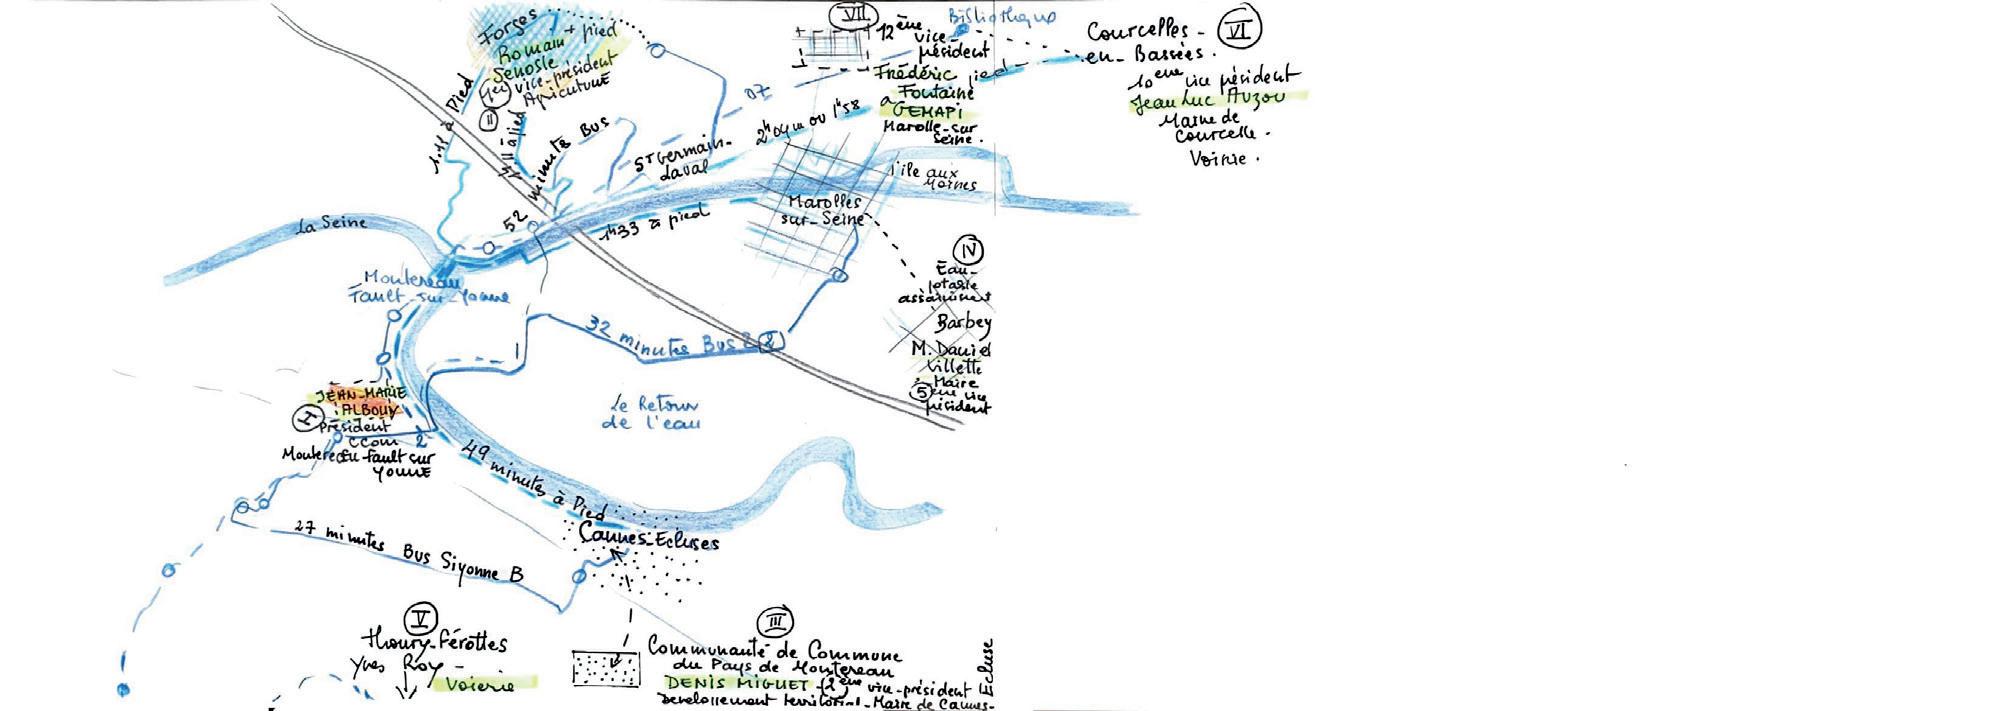 Forges
+ pied
Romain
Senoble
1er vice-président
Agriculture
II
1.11 à Pied
à pied
52 minutes Bus
VII
12ème
vice-
président
Frédéric
Fontaine
GEMAPI
Marolle-sur
Seine.
Bibliothèque
pied
Courcelles-
en-Bassées.
VI
10ème vice président
Jean Luc Auzou
Maire de
Courcelle.
Voirie.
07
2h04m ou 1h58
à
St Germain-
Laval
l'île aux
Moines
Marolles
sur-Seine
1h33 à pied
La Seine
Montereau
Fault-sur-Yonne
IV
Eau-
potable
assainiment
Barbey
M. Daniel
Villette
Maire
5ème vice
président
32 minutes Bus 2
2
Le Retour
de l'eau
JEAN-MARIE
ALBOUY
I
Président
CCom
2
Montereau-fault sur
Yonne
49 minutes à Pied
Cannes-Ecluses
27 minutes Bus Siyonne B
V
Thoury-Férottes
Yves Roy -
Voierie
III
Communauté de Commune
du Pays de Montereau
DENIS MIGUET - (2ème vice-président
Developpement territorial - Maire de Cannes-
Ecluse